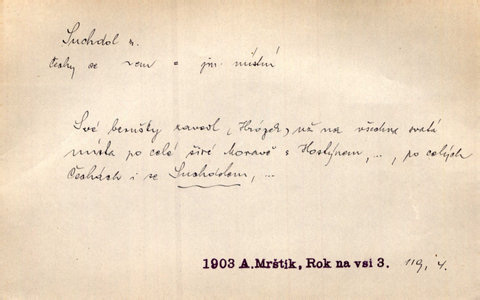 Suchdol m.
Čechy se vem o jm. místní
Své berušky zavedl (Hrózek) už na všechna svatá
místa po celé širé Moravě s Hostýnem, .., po celých
Čechách i se Suchdolem, ...
1903 A. Mrštík, Rok na vsi 3. 119, 4.